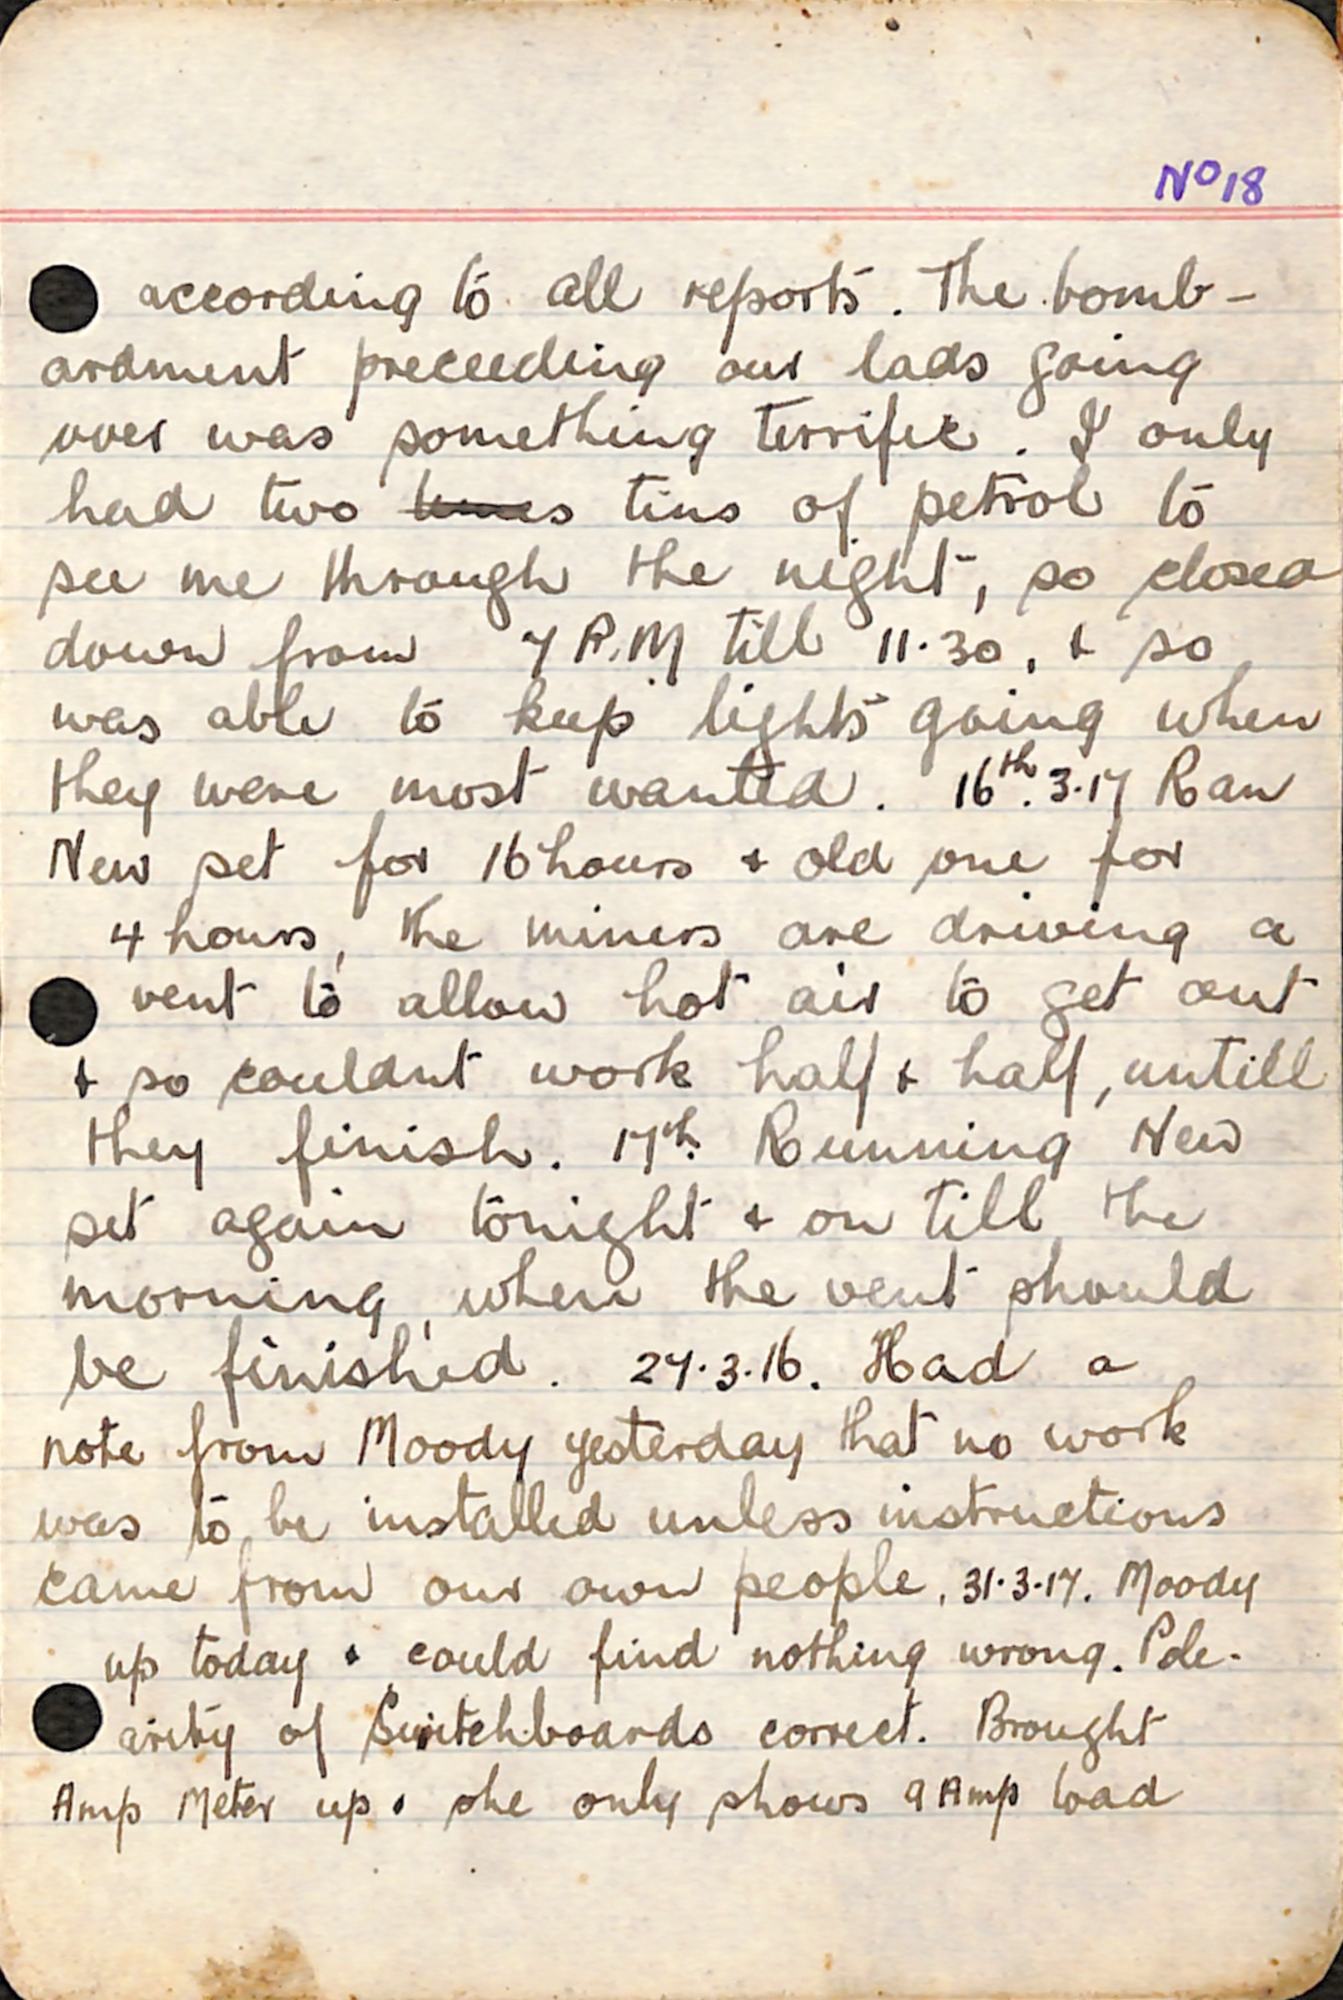 No 18
according to all reports. The bomb-
ardment preceeding our lads going
over was something terrific. I only
had two tins of petrol to
see me through the night, so closed
down from 7 P.M till 11.30, & so
was able to keep lights going when
they were most wanted. 16th.3.17 Ran
New set for 16 hours & old one for
4 hours, the miners are driving a
vent to allow hot air to get out
& so couldnt work half & half, untill
they finish. 17th. Running New
set again tonight & on till the
morning, when the vent should
be finished. 27.3.16. Had a
note from Moody yesterday that no work
was to be installed unless instructions
came from our own people. 31.3.17. Moody
up today & could find nothing wrong. Pole-
arity of Switchboards correct. Brought
Amp Meter up & she only shows 9 Amp load